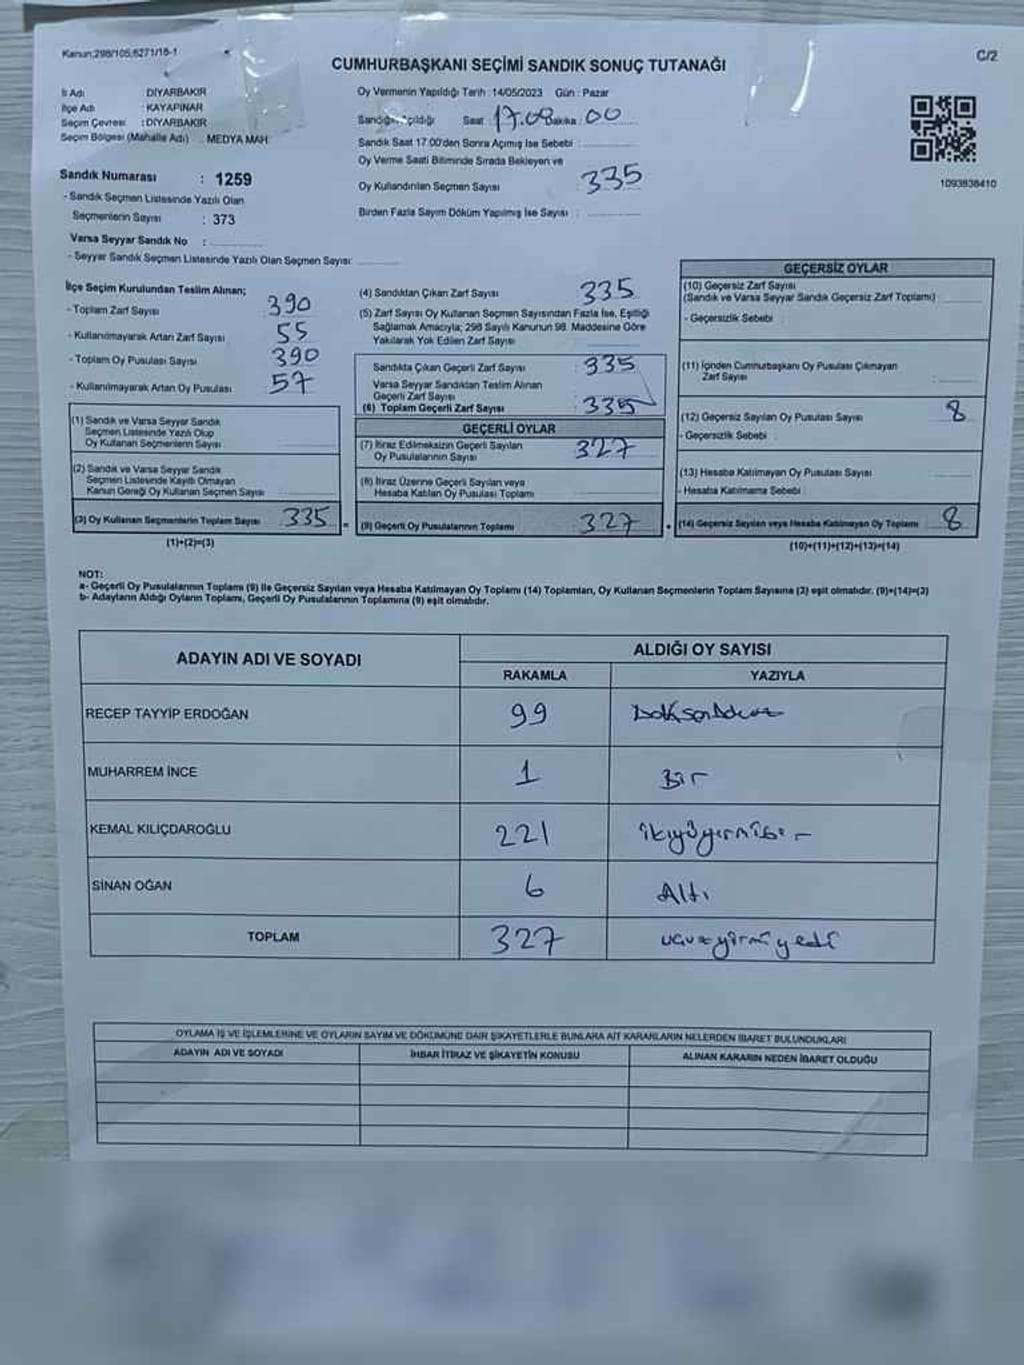 Kanun:298/105,6271/16-1
C/2
CUMHURBAŞKANI SEÇİMİ SANDIK SONUÇ TUTANAĞI
İl Adı : DİYARBAKIR
İlçe Adı : KAYAPINAR
Seçim Çevresi : DİYARBAKIR
Seçim Bölgesi (Mahalle Adı) : MEDYA MAH.
Sandık Numarası : 1259
- Sandık Seçmen Listesinde Yazılı Olan
Seçmenlerin Sayısı : 373
Varsa Seyyar Sandık No :
- Seyyar Sandık Seçmen Listesinde Yazılı Olan Seçmen Sayısı:
Oy Vermenin Yapıldığı Tarih : 14/05/2023 Gün : Pazar
Sandığın Açıldığı Saat 17.08 Dakika : 00
Sandık Saat 17:00'den Sonra Açımış İse Sebebi :
Oy Verme Saati Bitiminde Sırada Bekleyen ve
Oy Kullandırılan Seçmen Sayısı : 335
Birden Fazla Sayım Döküm Yapılmış İse Sayısı :
1093838410
İlçe Seçim Kurulundan Teslim Alınan;
- Toplam Zarf Sayısı 390
- Kullanılmayarak Artan Zarf Sayısı 55
- Toplam Oy Pusulası Sayısı 390
- Kullanılmayarak Artan Oy Pusulası 57
(1) Sandık ve Varsa Seyyar Sandık
Seçmen Listesinde Yazılı Olup
Oy Kullanan Seçmenlerin Sayısı
(2) Sandık ve Varsa Seyyar Sandık
Seçmen Listesinde Kayıtlı Olmayan
Kanun Gereği Oy Kullanan Seçmen Sayısı
(3) Oy Kullanan Seçmenlerin Toplam Sayısı 335
(1)+(2)=(3)
(4) Sandıktan Çıkan Zarf Sayısı 335
(5) Zarf Sayısı Oy Kullanan Seçmen Sayısından Fazla İse, Eşitliği
Sağlamak Amacıyla; 298 Sayılı Kanunun 98. Maddesine Göre
Yakılarak Yok Edilen Zarf Sayısı
Sandıkta Çıkan Geçerli Zarf Sayısı : 335
Varsa Seyyar Sandıktan Teslim Alınan
Geçerli Zarf Sayısı
(6) Toplam Geçerli Zarf Sayısı : 335
GEÇERLİ OYLAR
(7) İtiraz Edilmeksizin Geçerli Sayılan
Oy Pusulalarının Sayısı 327
(8) İtiraz Üzerine Geçerli Sayılan veya
Hesaba Katılan Oy Pusulası Toplamı
= (9) Geçerli Oy Pusulalarının Toplamı 327
GEÇERSİZ OYLAR
(10) Geçersiz Zarf Sayısı
(Sandık ve Varsa Seyyar Sandık Geçersiz Zarf Toplamı)
- Geçersizlik Sebebi :
(11) İçinden Cumhurbaşkanı Oy Pusulası Çıkmayan
Zarf Sayısı
(12) Geçersiz Sayılan Oy Pusulası Sayısı 8
- Geçersizlik Sebebi :
(13) Hesaba Katılmayan Oy Pusulası Sayısı
- Hesaba Katılmama Sebebi :
+ (14) Geçersiz Sayılan veya Hesaba Katılmayan Oy Toplamı 8
(10)+(11)+(12)+(13)=(14)
NOT:
a- Geçerli Oy Pusulalarının Toplamı (9) ile Geçersiz Sayılan veya Hesaba Katılmayan Oy Toplamı (14) Toplamları, Oy Kullanan Seçmenlerin Toplam Sayısına (3) eşit olmalıdır. (9)+(14)=(3)
b- Adayların Aldığı Oyların Toplamı, Geçerli Oy Pusulalarının Toplamına (9) eşit olmalıdır.
ADAYIN ADI VE SOYADI
ALDIĞI OY SAYISI
RAKAMLA YAZIYLA
RECEP TAYYİP ERDOĞAN 99 Doksandokuz
MUHARREM İNCE 1 Bir
KEMAL KILIÇDAROĞLU 221 ikiyüzyirmibir
SİNAN OĞAN 6 Altı
TOPLAM 327 üçyüzyirmiyedi
OYLAMA İŞ VE İŞLEMLERİNE VE OYLARIN SAYIM VE DÖKÜMÜNE DAİR ŞİKAYETLERLE BUNLARA AİT KARARLARIN NELERDEN İBARET BULUNDUKLARI
ADAYIN ADI VE SOYADI İHBAR İTİRAZ VE ŞİKAYETİN KONUSU ALINAN KARARIN NEDEN İBARET OLDUĞU